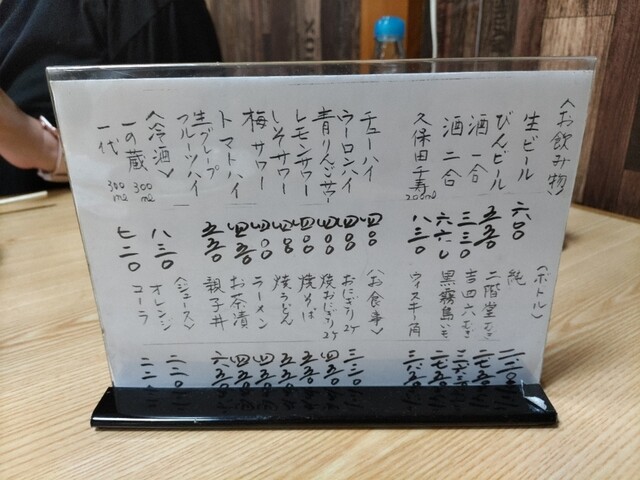 〈お飲み物〉
生ビール 六〇〇
びんビール 五五〇
酒 一合 三三〇
酒 二合 六六〇
久保田千寿 200ml 八三〇
チューハイ 四〇〇
ウーロンハイ 四〇〇
青りんごサワー 四〇〇
レモンサワー 四〇〇
しそサワー 四〇〇
梅サワー 四〇〇
トマトハイ 四五〇
生グレープフルーツハイ 五五〇
〈冷酒〉
一の蔵 300ml 八三〇
一代 300ml 七二〇
〈ボトル〉
純
二階堂 むぎ
吉四六 むぎ
黒霧島 いも
ウィスキー角
〈お食事〉
おにぎり2ケ 三三〇
焼おにぎり2ケ 四五〇
焼そば 五五〇
焼うどん 五五〇
ラーメン
お茶漬 四五〇
親子丼 六五〇
〈ジュース〉
オレンジ 二二〇
コーラ 二二〇